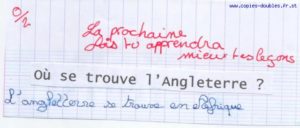 www.copies-doubles.fr.st
0/2
La prochaine
fois tu apprendra
mieux tes leçons
Où se trouve l'Angleterre ?
L'angleterre se trouve en Afrique